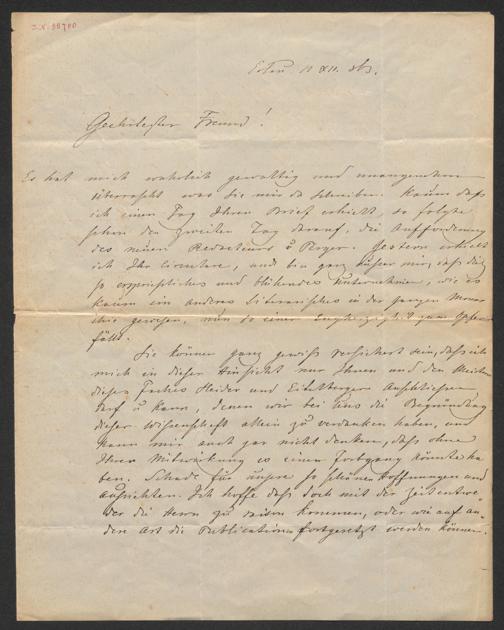 I.N. 88700
11 XII. 863.
Geehrtester Freund!
Es hat mich wahrlich gewaltig und unangenehm
überrascht was Sie mir da schreiben. Kaum daß
ich einen Tag Ihren Brief erhielt, so folgte
schon den zweiten Tag darauf, die Aufforderung
des neuen Redacteurs Gestern erhielt
ich Ihr Circulare, und bin ganz mir, daß ein
so ersprießliches und blühendes Unternehmen, wie es
kaum ein anderes literarisches in der ganzen Monar
chie gewesen, nun so einer zum Opfer
fällt.
Sie können ganz gewiß versichert sein, daß ich
mich in dieser Hinsicht nur Ihnen und den
dieses Faches Heider und Eitelberger Anschließen
darf u kann, denen wir bei uns die Begründung
dieser Wissenschaft allein zu verdanken haben, und
kann mir auch gar nicht denken, daß ohne
Ihrer Mitwirkung es einen Fortgang könnte ha
ben. Schade für unsre so schönen Hoffnungen und
Aussichten. Ich hoffe daß doch mit der Zeit entwe
der die Herrn zu raison kommen, oder wie auf an
den Art die Publicationen fortgesetzt werden können.